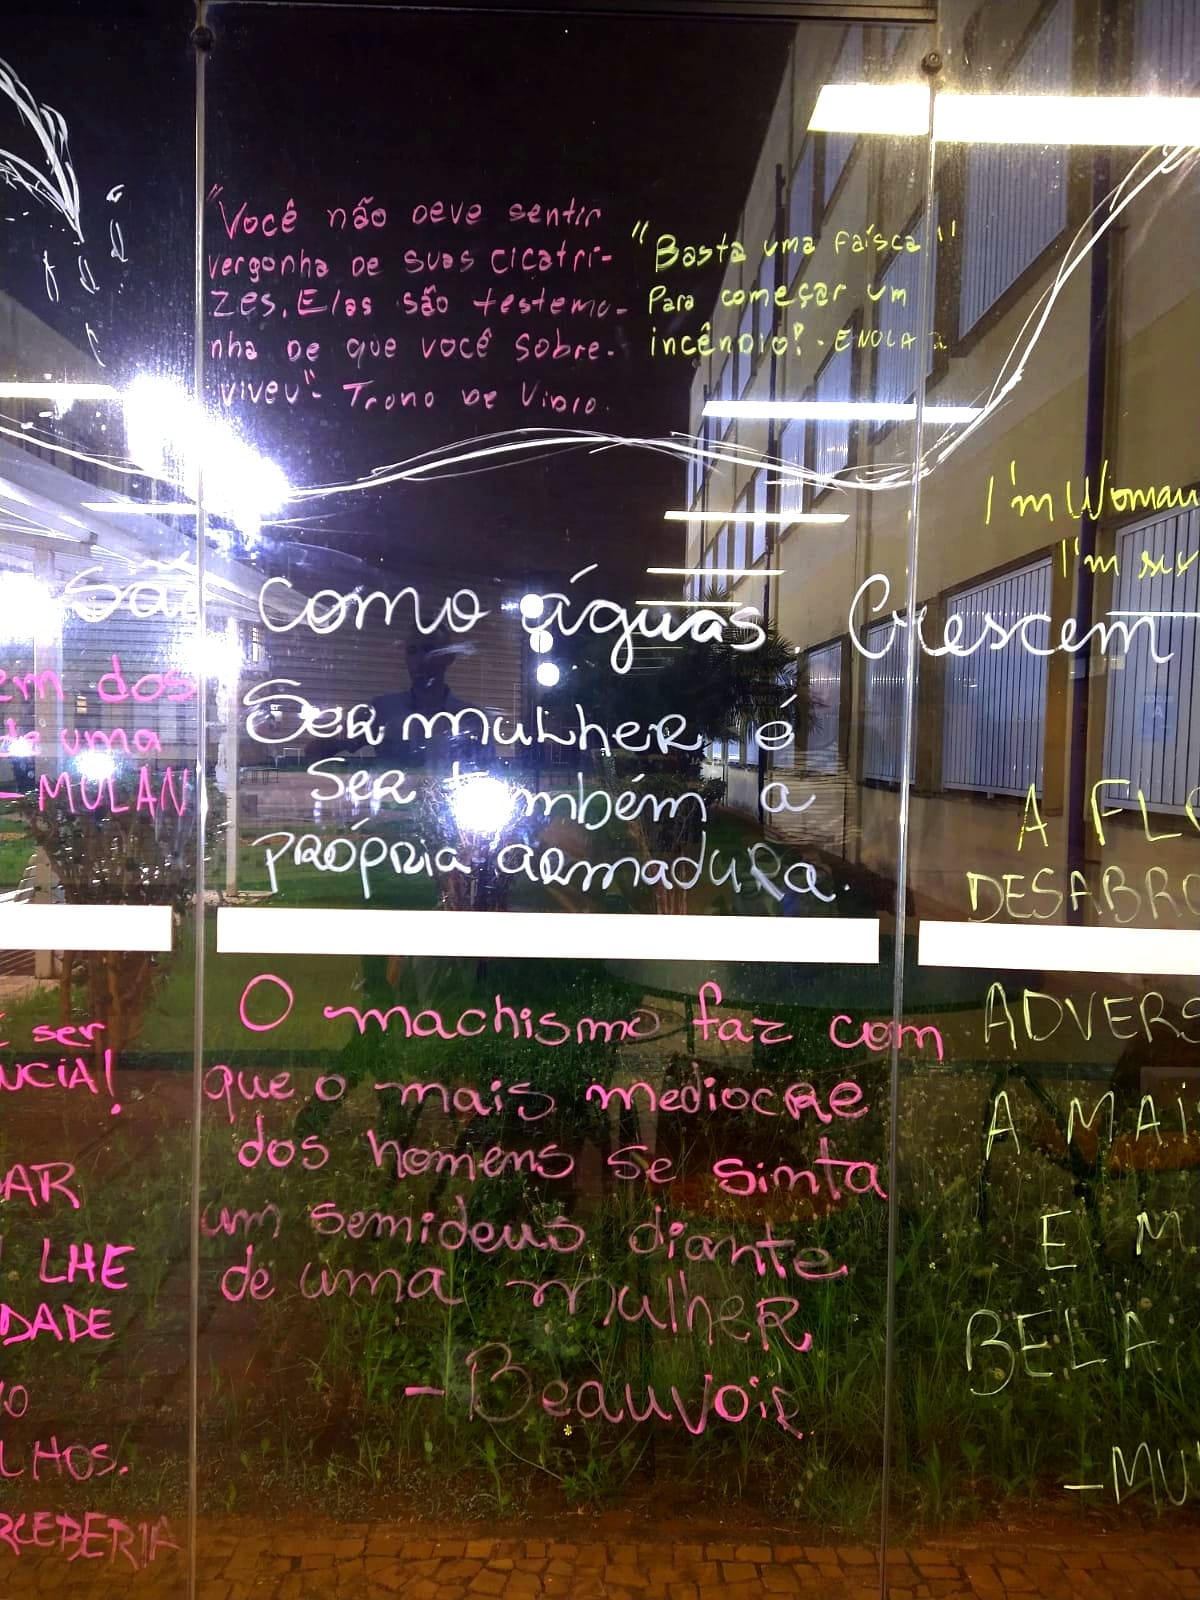 "Você não deve sentir
vergonha de suas cicatri-
zes. Elas são testemu-
nha de que você sobre-
viveu" - Trono de Vidro.
"Basta uma faísca"
Para começar um
incêndio! - ENOLA 2
I'm Woman
I'm
São como águas. Crescem
em dos
de uma
- MULAN
Ser mulher é
ser também a
própria armadura.
A FLO
DESABRO
ADVERS
A MAI
E M
BELA
-MU
ser
NCIA!
DAR
LHE
DADE
LHOS.
RCEBERIA
O machismo faz com
que o mais mediocre
dos homens se sinta
um semideus diante
de uma mulher
- Beauvoir